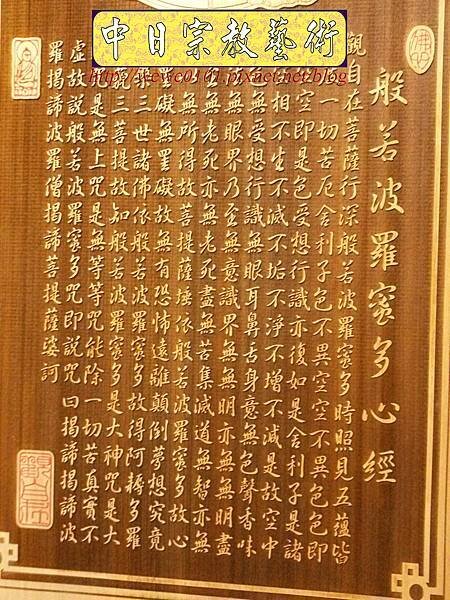 中日宗教藝術
佛心
般若波羅蜜多心經
觀自在菩薩行深般若波羅蜜多時照見五蘊皆
一切苦厄舍利子色不異空空不異色色即
空即是色受想行識亦復如是舍利子是諸
相不生不滅不垢不淨不增不減是故空中
無受想行識無眼耳鼻舌身意無色聲香味
無眼界乃至無意識界無無明亦無無明盡
至無老死亦無老死盡無苦集滅道無智亦無
無所得故菩提薩埵依般若波羅蜜多故心
罣礙無罣礙故無有恐怖遠離顛倒夢想究竟
槃三世諸佛依般若波羅蜜多故得阿耨多羅
藐三菩提故知般若波羅蜜多是大神咒是大
咒是無上咒是無等等咒能除一切苦真實不
虛故說般若波羅蜜多咒即說咒曰揭諦揭諦波
羅揭諦波羅僧揭諦菩提薩婆訶